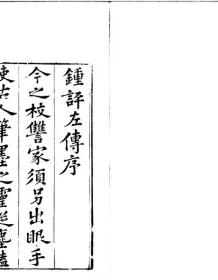 鍾評左傳序
今之校讐家須另出眼手
使古人筆墨之靈從塵